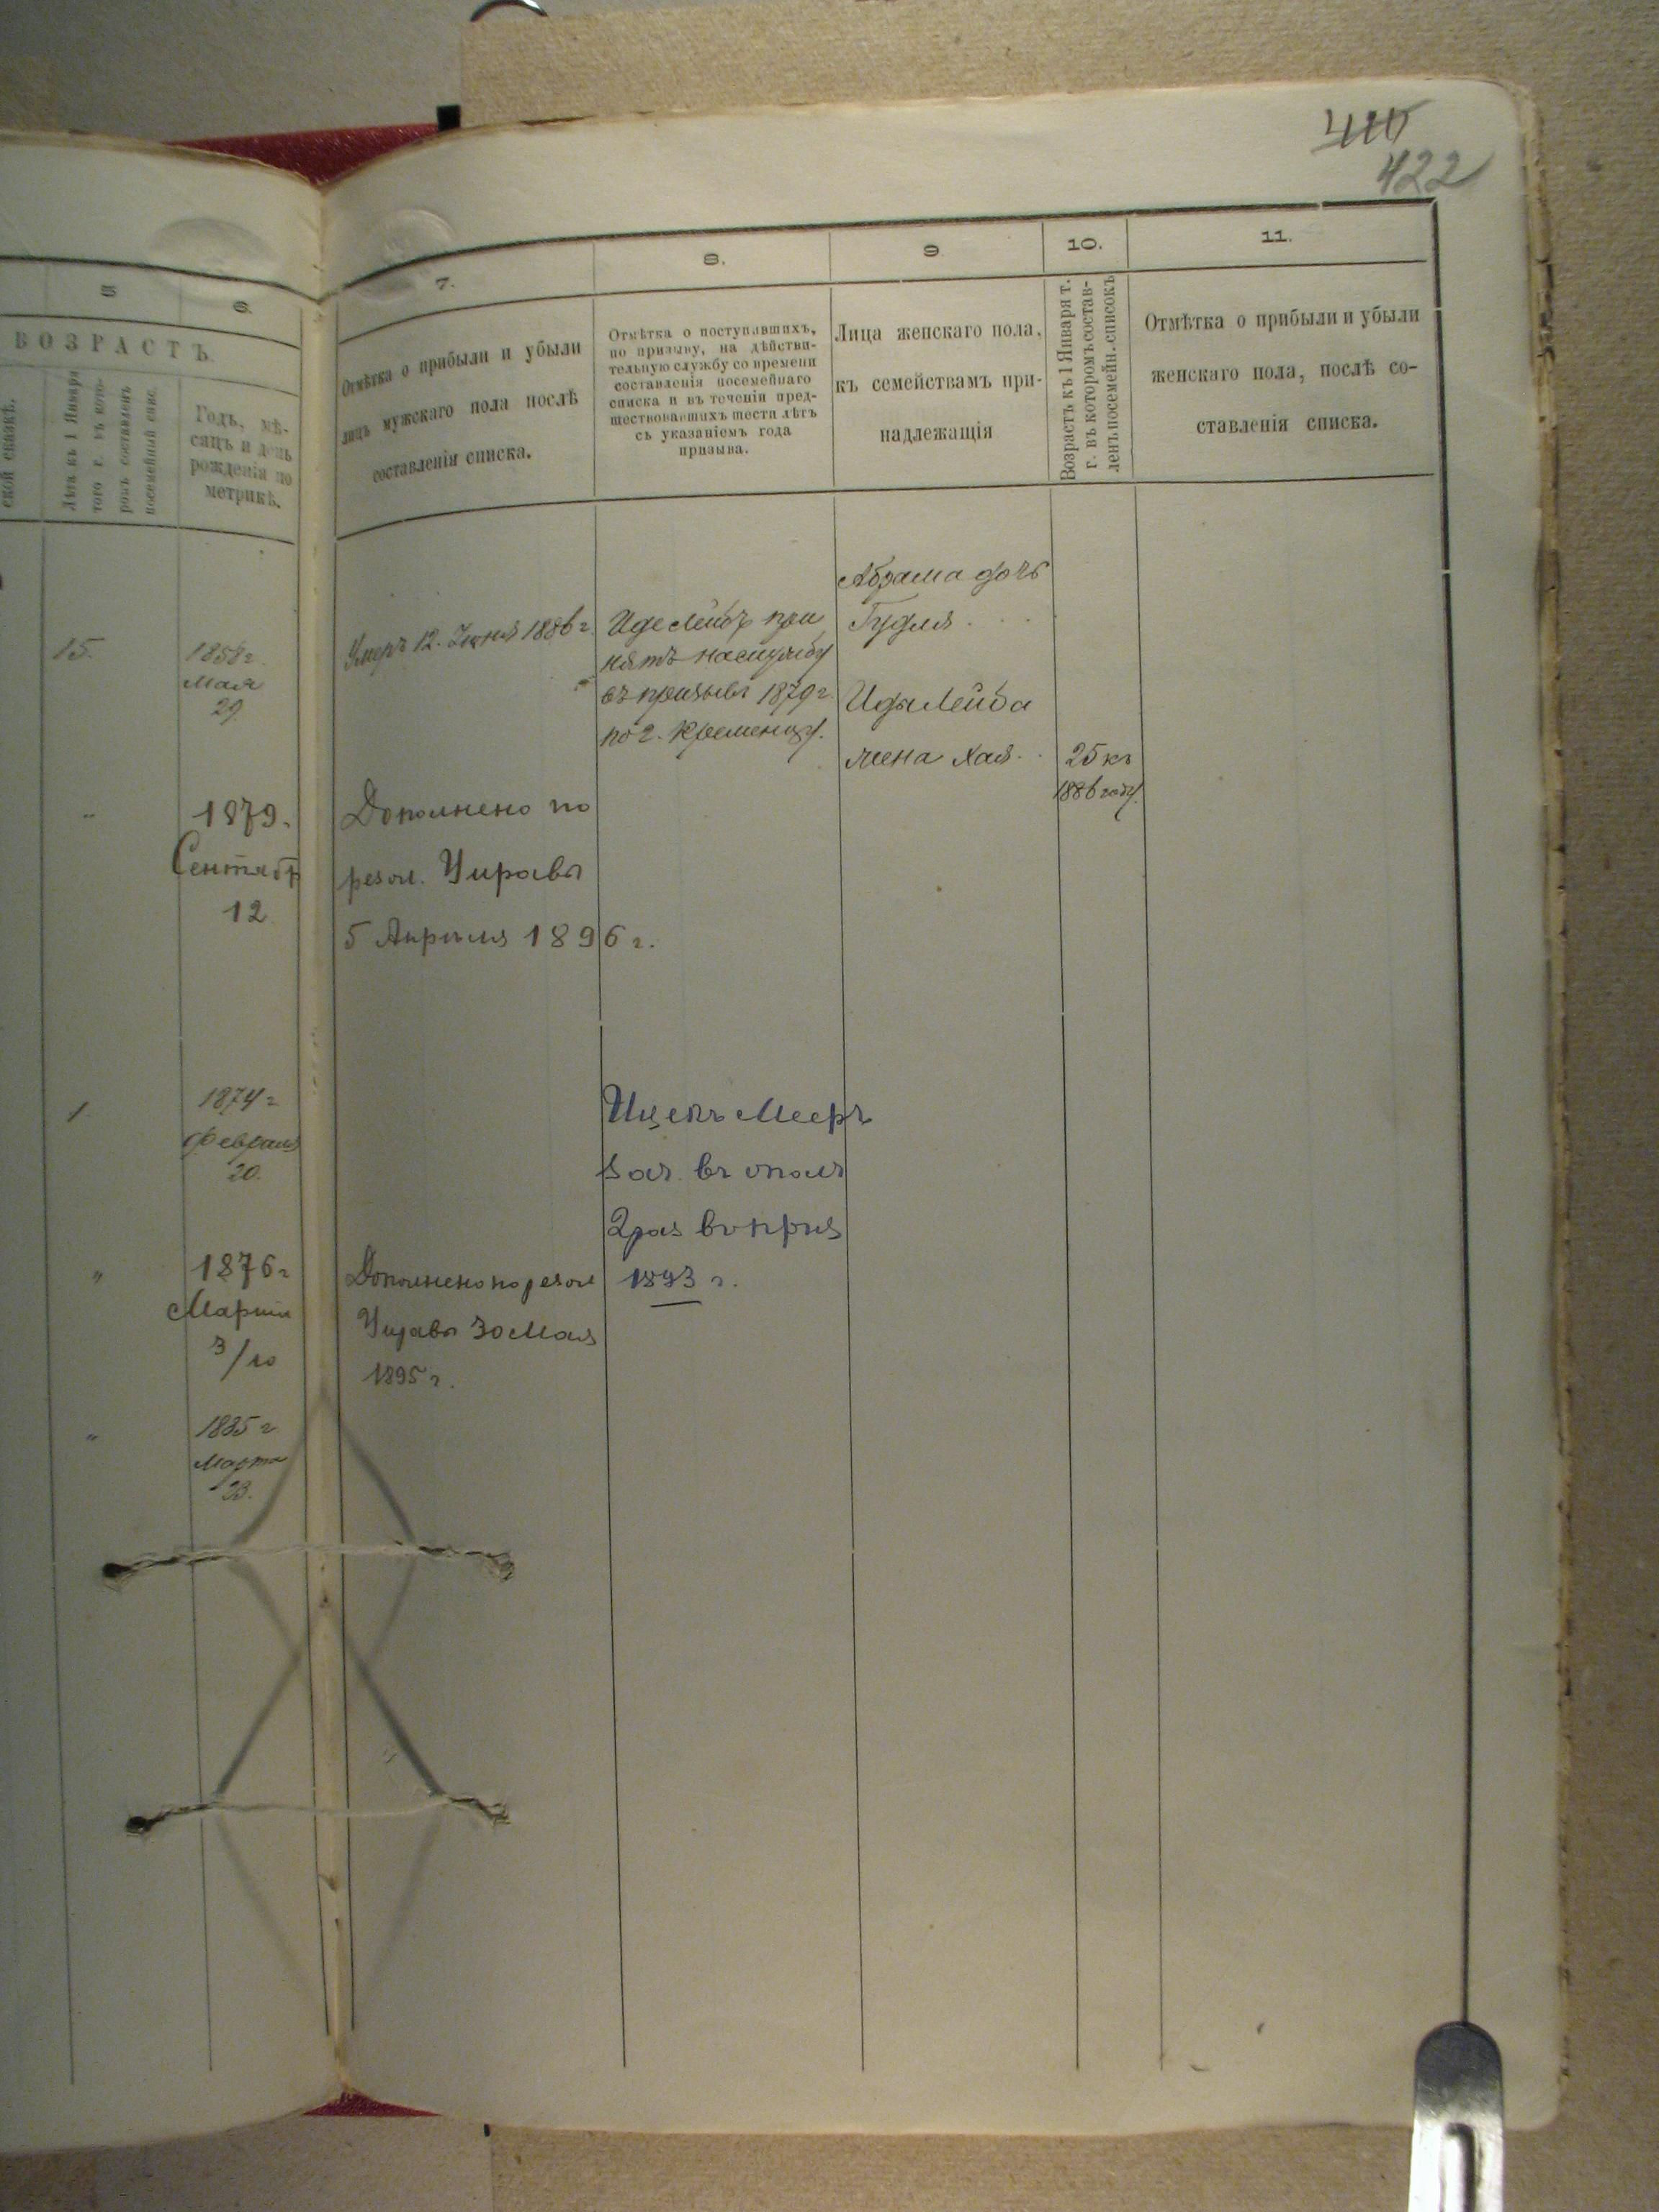 422
5
6.
ВОЗРАСТЪ.
ской сказкѣ.
Лѣта къ 1 Января
того г. въ кото-
ромъ составленъ
посемейный спис.
Годъ, мѣ-
сяцъ и день
рожденія по
метрикѣ.
7.
8.
9
10.
11.
Отмѣтка о прибыли и убыли
лицъ мужскаго пола послѣ
составленія списка.
Отмѣтка о поступавшихъ,
по призыву, на дѣйстви-
тельную службу со времени
составленія посемейнаго
списка и въ теченіи пред-
шествовавшихъ шести лѣтъ
съ указаніемъ года
призыва.
Лица женскаго пола,
къ семействамъ при-
надлежащія
Возрастъ къ 1 Января т.
г. въ которомъ состав-
ленъ посемейн. списокъ
Отмѣтка о прибыли и убыли
женскаго пола, послѣ со-
ставленія списка.
15.
1858 г.
Мая
29
Умеръ 12. Іюня 1886 г.
Иде Лейбъ при
нятъ на службу
въ призывъ 1879 г.
по г. Кременцу.
Абрама дочь
Гудля
Иды Лейба
жена Хая
25 къ
1886 году.
"
1879.
Сентябр
12
Дополнено по
резол. Управы
5 Апрѣля 1896 г.
1.
1874 г
Февраля
20.
Ицекъ Мееръ
зач. въ ополч
2 раз въ приз
1893 г.
"
1876 г
Марта
3/10
Дополнено по резол
Управы 30 Мая
1895 г.
"
1885 г
Марта
23.